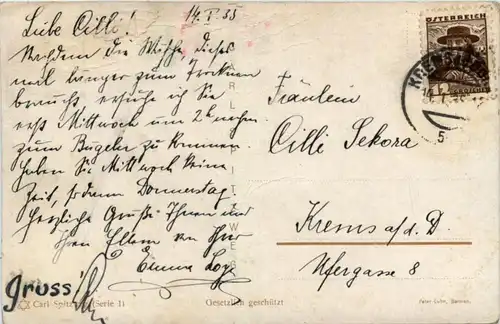 14. I. 35
Liebe Cilli!
Nachdem die Wäsche dieses
mal länger zum Trocknen
braucht ersuche ich Sie
erst Mittwoch um 2h nachm.
zum Bügeln zu kommen.
Haben Sie Mittwoch keine
Zeit, so dann Donnerstag.
Herzliche Grüße Ihnen und
Ihren Eltern von Ihrer
Emma
Gruss!
Carl (Serie 1)
Gesetzlich geschützt
ÖSTERREICH
5
Fräulein
Cilli Sekora
Krems a/d. D.
Ufergasse 8